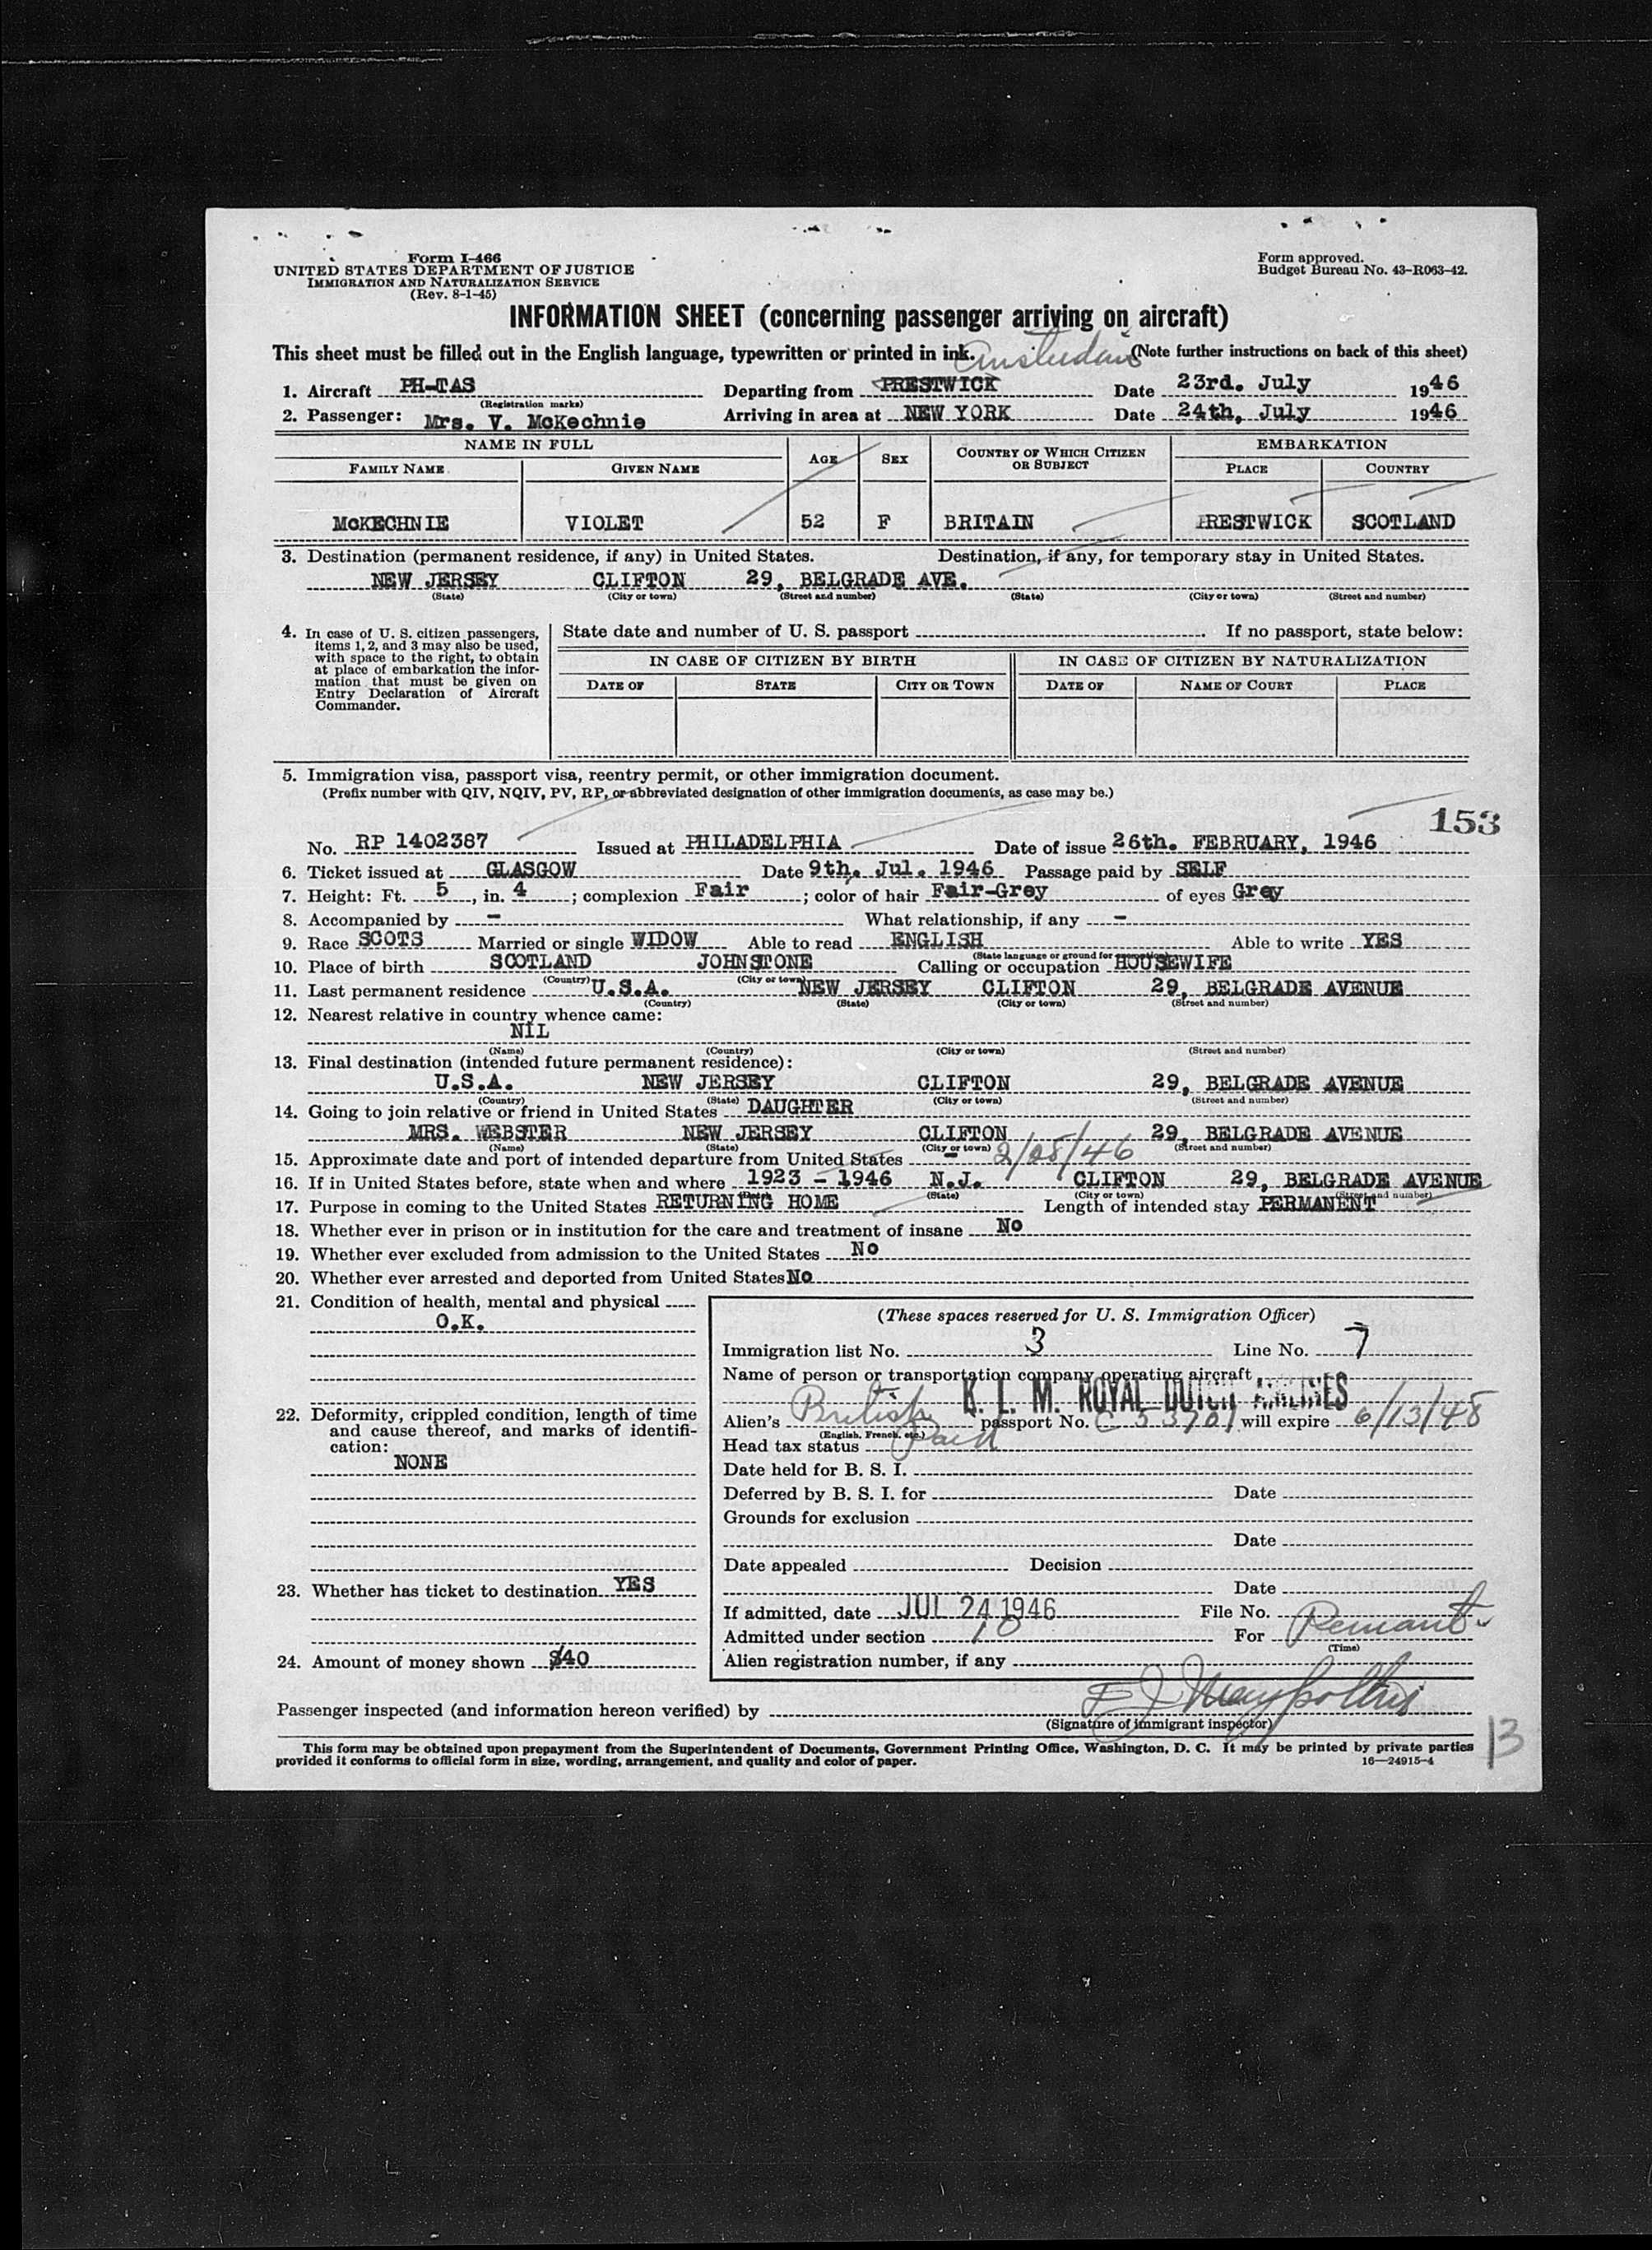 Form I-466
UNITED STATES DEPARTMENT OF JUSTICE
IMMIGRATION AND NATURALIZATION SERVICE
(Rev. 8-1-45)
Form approved.
Budget Bureau No. 43-R063-42.
INFORMATION SHEET (concerning passenger arriving on aircraft)
This sheet must be filled out in the English language, typewritten or printed in ink. (Note further instructions on back of this sheet)
Amsterdam
1. Aircraft PH-TAS Departing from PRESTWICK Date 23rd. July 1946
(Registration marks)
2. Passenger: Mrs. V. McKechnie Arriving in area at NEW YORK Date 24th, July 1946
NAME IN FULL AGE SEX COUNTRY OF WHICH CITIZEN OR SUBJECT EMBARKATION
FAMILY NAME GIVEN NAME PLACE COUNTRY
McKECHNIE VIOLET 52 F BRITAIN PRESTWICK SCOTLAND
3. Destination (permanent residence, if any) in United States. Destination, if any, for temporary stay in United States.
NEW JERSEY CLIFTON 29, BELGRADE AVE.
(State) (City or town) (Street and number) (State) (City or town) (Street and number)
4. In case of U. S. citizen passengers, items 1, 2, and 3 may also be used, with space to the right, to obtain at place of embarkation the information that must be given on Entry Declaration of Aircraft Commander.
State date and number of U. S. passport . If no passport, state below:
IN CASE OF CITIZEN BY BIRTH IN CASE OF CITIZEN BY NATURALIZATION
DATE OF STATE CITY OR TOWN DATE OF NAME OF COURT PLACE
5. Immigration visa, passport visa, reentry permit, or other immigration document.
(Prefix number with QIV, NQIV, PV, RP, or abbreviated designation of other immigration documents, as case may be.)
153
No. RP 1402387 Issued at PHILADELPHIA Date of issue 26th. FEBRUARY, 1946
6. Ticket issued at GLASGOW Date 9th, Jul. 1946 Passage paid by SELF
7. Height: Ft. 5, in. 4; complexion Fair; color of hair Fair-Grey of eyes Grey
8. Accompanied by - What relationship, if any -
9. Race SCOTS Married or single WIDOW Able to read ENGLISH Able to write YES
(State language or ground for exemption)
10. Place of birth SCOTLAND JOHNSTONE Calling or occupation HOUSEWIFE
(Country) (City or town)
11. Last permanent residence U.S.A. NEW JERSEY CLIFTON 29, BELGRADE AVENUE
(Country) (State) (City or town) (Street and number)
12. Nearest relative in country whence came:
NIL
(Name) (Country) (City or town) (Street and number)
13. Final destination (intended future permanent residence):
U.S.A. NEW JERSEY CLIFTON 29, BELGRADE AVENUE
(Country) (State) (City or town) (Street and number)
14. Going to join relative or friend in United States DAUGHTER
MRS. WEBSTER NEW JERSEY CLIFTON 29, BELGRADE AVENUE
(Name) (State) (City or town) (Street and number)
15. Approximate date and port of intended departure from United States - 2/28/46
16. If in United States before, state when and where 1923 - 1946 N.J. CLIFTON 29, BELGRADE AVENUE
(State) (City or town) (Street and number)
17. Purpose in coming to the United States RETURNING HOME Length of intended stay PERMANENT
18. Whether ever in prison or in institution for the care and treatment of insane No
19. Whether ever excluded from admission to the United States No
20. Whether ever arrested and deported from United States No
21. Condition of health, mental and physical
O.K.
22. Deformity, crippled condition, length of time and cause thereof, and marks of identification:
NONE
23. Whether has ticket to destination YES
24. Amount of money shown $40
(These spaces reserved for U. S. Immigration Officer)
Immigration list No. 3 Line No. 7
Name of person or transportation company operating aircraft
K. L. M. ROYAL DUTCH AIRLINES
Alien's British passport No. C 53701 will expire 6/13/48
(English, French, etc.)
Head tax status Paid
Date held for B. S. I.
Deferred by B. S. I. for Date
Grounds for exclusion
Date
Date appealed Decision
Date
If admitted, date JUL 24 1946 File No.
Admitted under section 10 For
(Time)
Alien registration number, if any
Passenger inspected (and information hereon verified) by
(Signature of immigrant inspector)
13
This form may be obtained upon prepayment from the Superintendent of Documents, Government Printing Office, Washington, D. C. It may be printed by private parties
provided it conforms to official form in size, wording, arrangement, and quality and color of paper. 16—24915-4